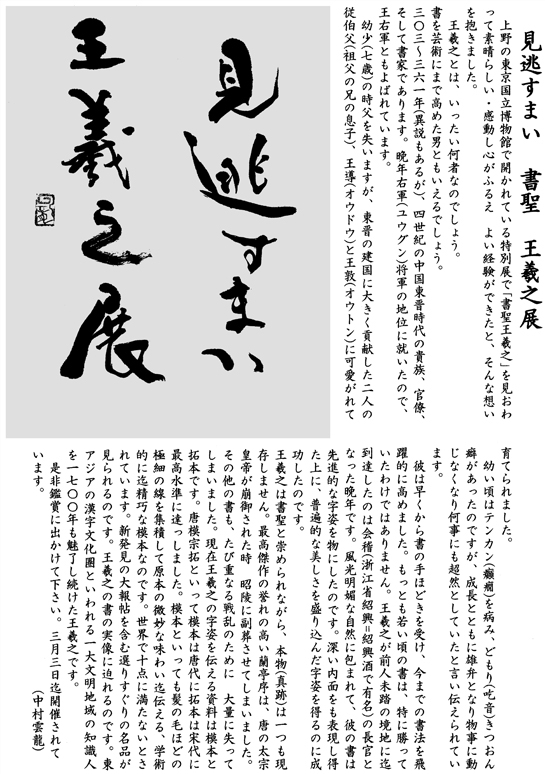 見逃すまい　書聖　王羲之展
上野の東京国立博物館で開かれている特別展で「書聖王羲之」を見おわ
って素晴らしい・感動し心がふるえ　よい経験ができたと、そんな想い
を抱きました。
王羲之とは、いったい何者なのでしょう。
書を芸術にまで高めた男ともいえるでしょう。
三〇三〜三六一年(異説もあるが)、四世紀の中国東晋時代の貴族、官僚、
そして書家であります。晩年右軍(ユウグン)将軍の地位に就いたので、
王右軍ともよばれています。
幼少(七歳)の時父を失いますが、東晋の建国に大きく貢献した二人の
従伯父(祖父の兄の息子)、王導(オウドウ)と王敦(オウトン)に可愛がれて
見逃すまい
王羲之展
育てられました。
幼い頃はテンカン(癲癇)を病み、どもり(吃音)きつおん
癖があったのですが、成長とともに雄弁となり物事に動
じなくなり何事にも超然としていたと言い伝えられてい
ます。
彼は早くから書の手ほどきを受け、今までの書法を飛
躍的に高めました。もっとも若い頃の書は、特に勝って
いたわけではありません。王羲之が前人未踏の境地に迄
到達したのは会稽(浙江省紹興=紹興酒で有名)の長官と
なった晩年です。風光明媚な自然に包まれて、彼の書は
先進的な字姿を物にしたのです。深い内面をも表現し得
た上に、普遍的な美しさを盛り込んだ字姿を得るのに成
功したのです。
王羲之は書聖と崇められながら、本物(真跡)は一つも現
存しません。最高傑作の誉れの高い蘭亭序は、唐の太宗
皇帝が崩御された時　昭陵に副葬させてしまいました。
その他の書も、たび重なる戦乱のために　大量に失って
しまいました。現在王羲之の字姿を伝える資料は模本と
拓本です。唐模宗拓といって模本は唐代に拓本は宋代に
最高水準に達っしました。模本といっても髪の毛ほどの
極細の線を集積して原本の微妙な味わい迄伝える、学術
的に迄精巧な模本なのです。世界で十点に満たないとさ
れています。新発見の大報帖を含む選りすぐりの名品が
見られるのです。王羲之の書の実像に迫れるのです。東
アジアの漢字文化圏といわれる一大文明地域の知識人
を一七〇〇年も魅了し続けた王羲之です。
是非鑑賞に出かけて下さい。三月三日迄開催されて
います。
(中村雲龍)